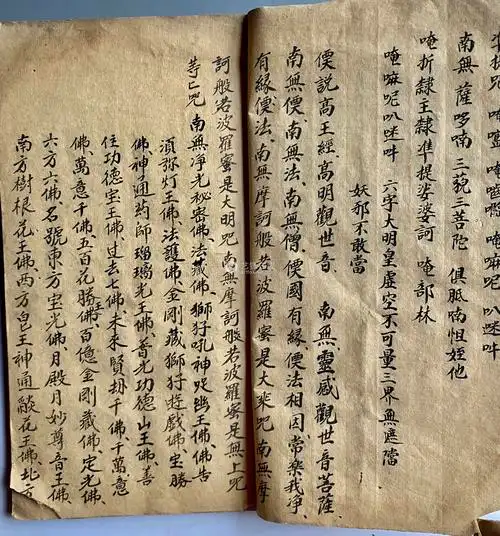 南無薩哆喃 三藐三菩陀 俱胝喃怛姪他
唵折隸主隸 準提娑婆訶 唵部林
唵嘛呢叭 吽 六字大明皇虛空不可量三界無遮擋
妖邪不敢當
說高王經高明觀世音 南無靈感觀世音菩薩
南無 南無法南無僧 國有緣 法相因常樂我凈
有緣 法南無摩訶般若波羅蜜是大 咒南無摩
訶般若波羅蜜是大明咒南無摩訶般若波羅蜜是無上咒
等 咒 南無凈光秘密佛法藏佛獅 吼神足幽王佛佛告
須弥灯王佛法護佛金剛藏獅 遊戲佛宝勝
佛神通药師瑠璃光王佛普光功德山王佛善
住功德宝王佛過去七佛未來賢 千佛千萬意
佛萬意千佛五百花勝佛百億金剛藏佛定光佛
六方六佛名號東方宝光佛月殿月妙尊音王佛
南方樹根花王佛西方皂王神通燄花王佛北方